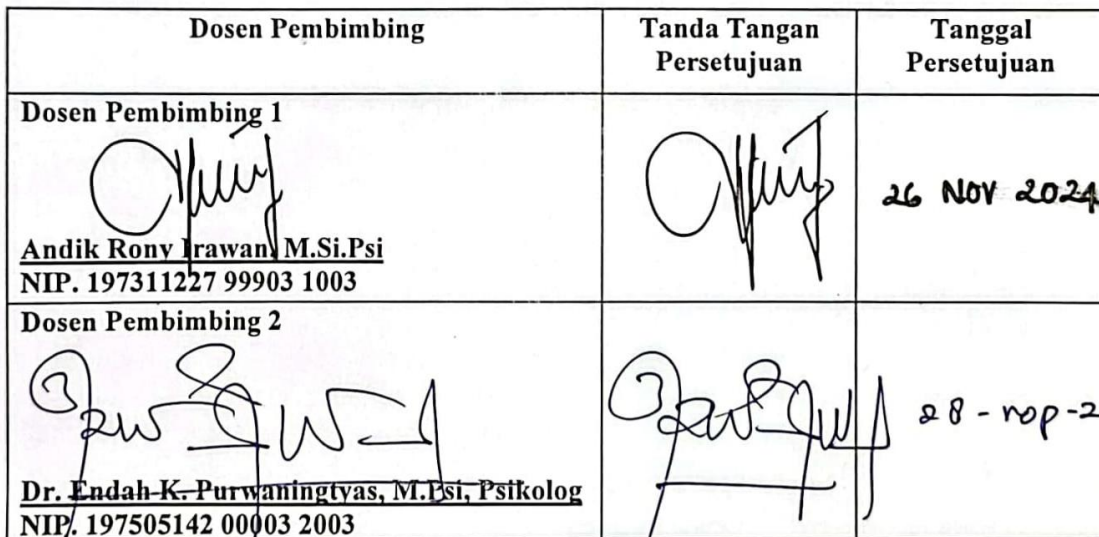 Dosen Pembimbing
Tanda Tangan
Persetujuan
Tanggal
Persetujuan
Dosen Pembimbing 1
Andik Rony Irawan, M.Si.Psi
NIP. 197311227 99903 1003
26 NOV 2024
Dosen Pembimbing 2
Dr. Endah K. Purwaningtyas, M.Psi, Psikolog
NIP. 197505142 00003 2003
28 - nop - 2